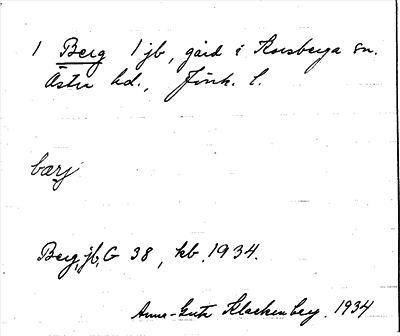 1 Berg 1 jb, gård i Almesåkra sn.
Östra hd., Jönk. l.
bærj
Berg, jb, G 38, kb 1934.
Anna-Greta Klackenberg. 1934